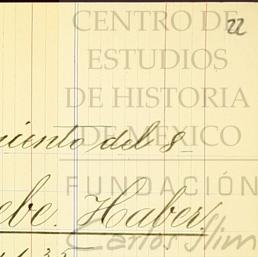 CENTRO DE
22
ESTUDIOS
DE HISTORIA
DE MÉXICO
miento del 8
FUNDACIÓN
ebe. Haber.
Carlos Slim